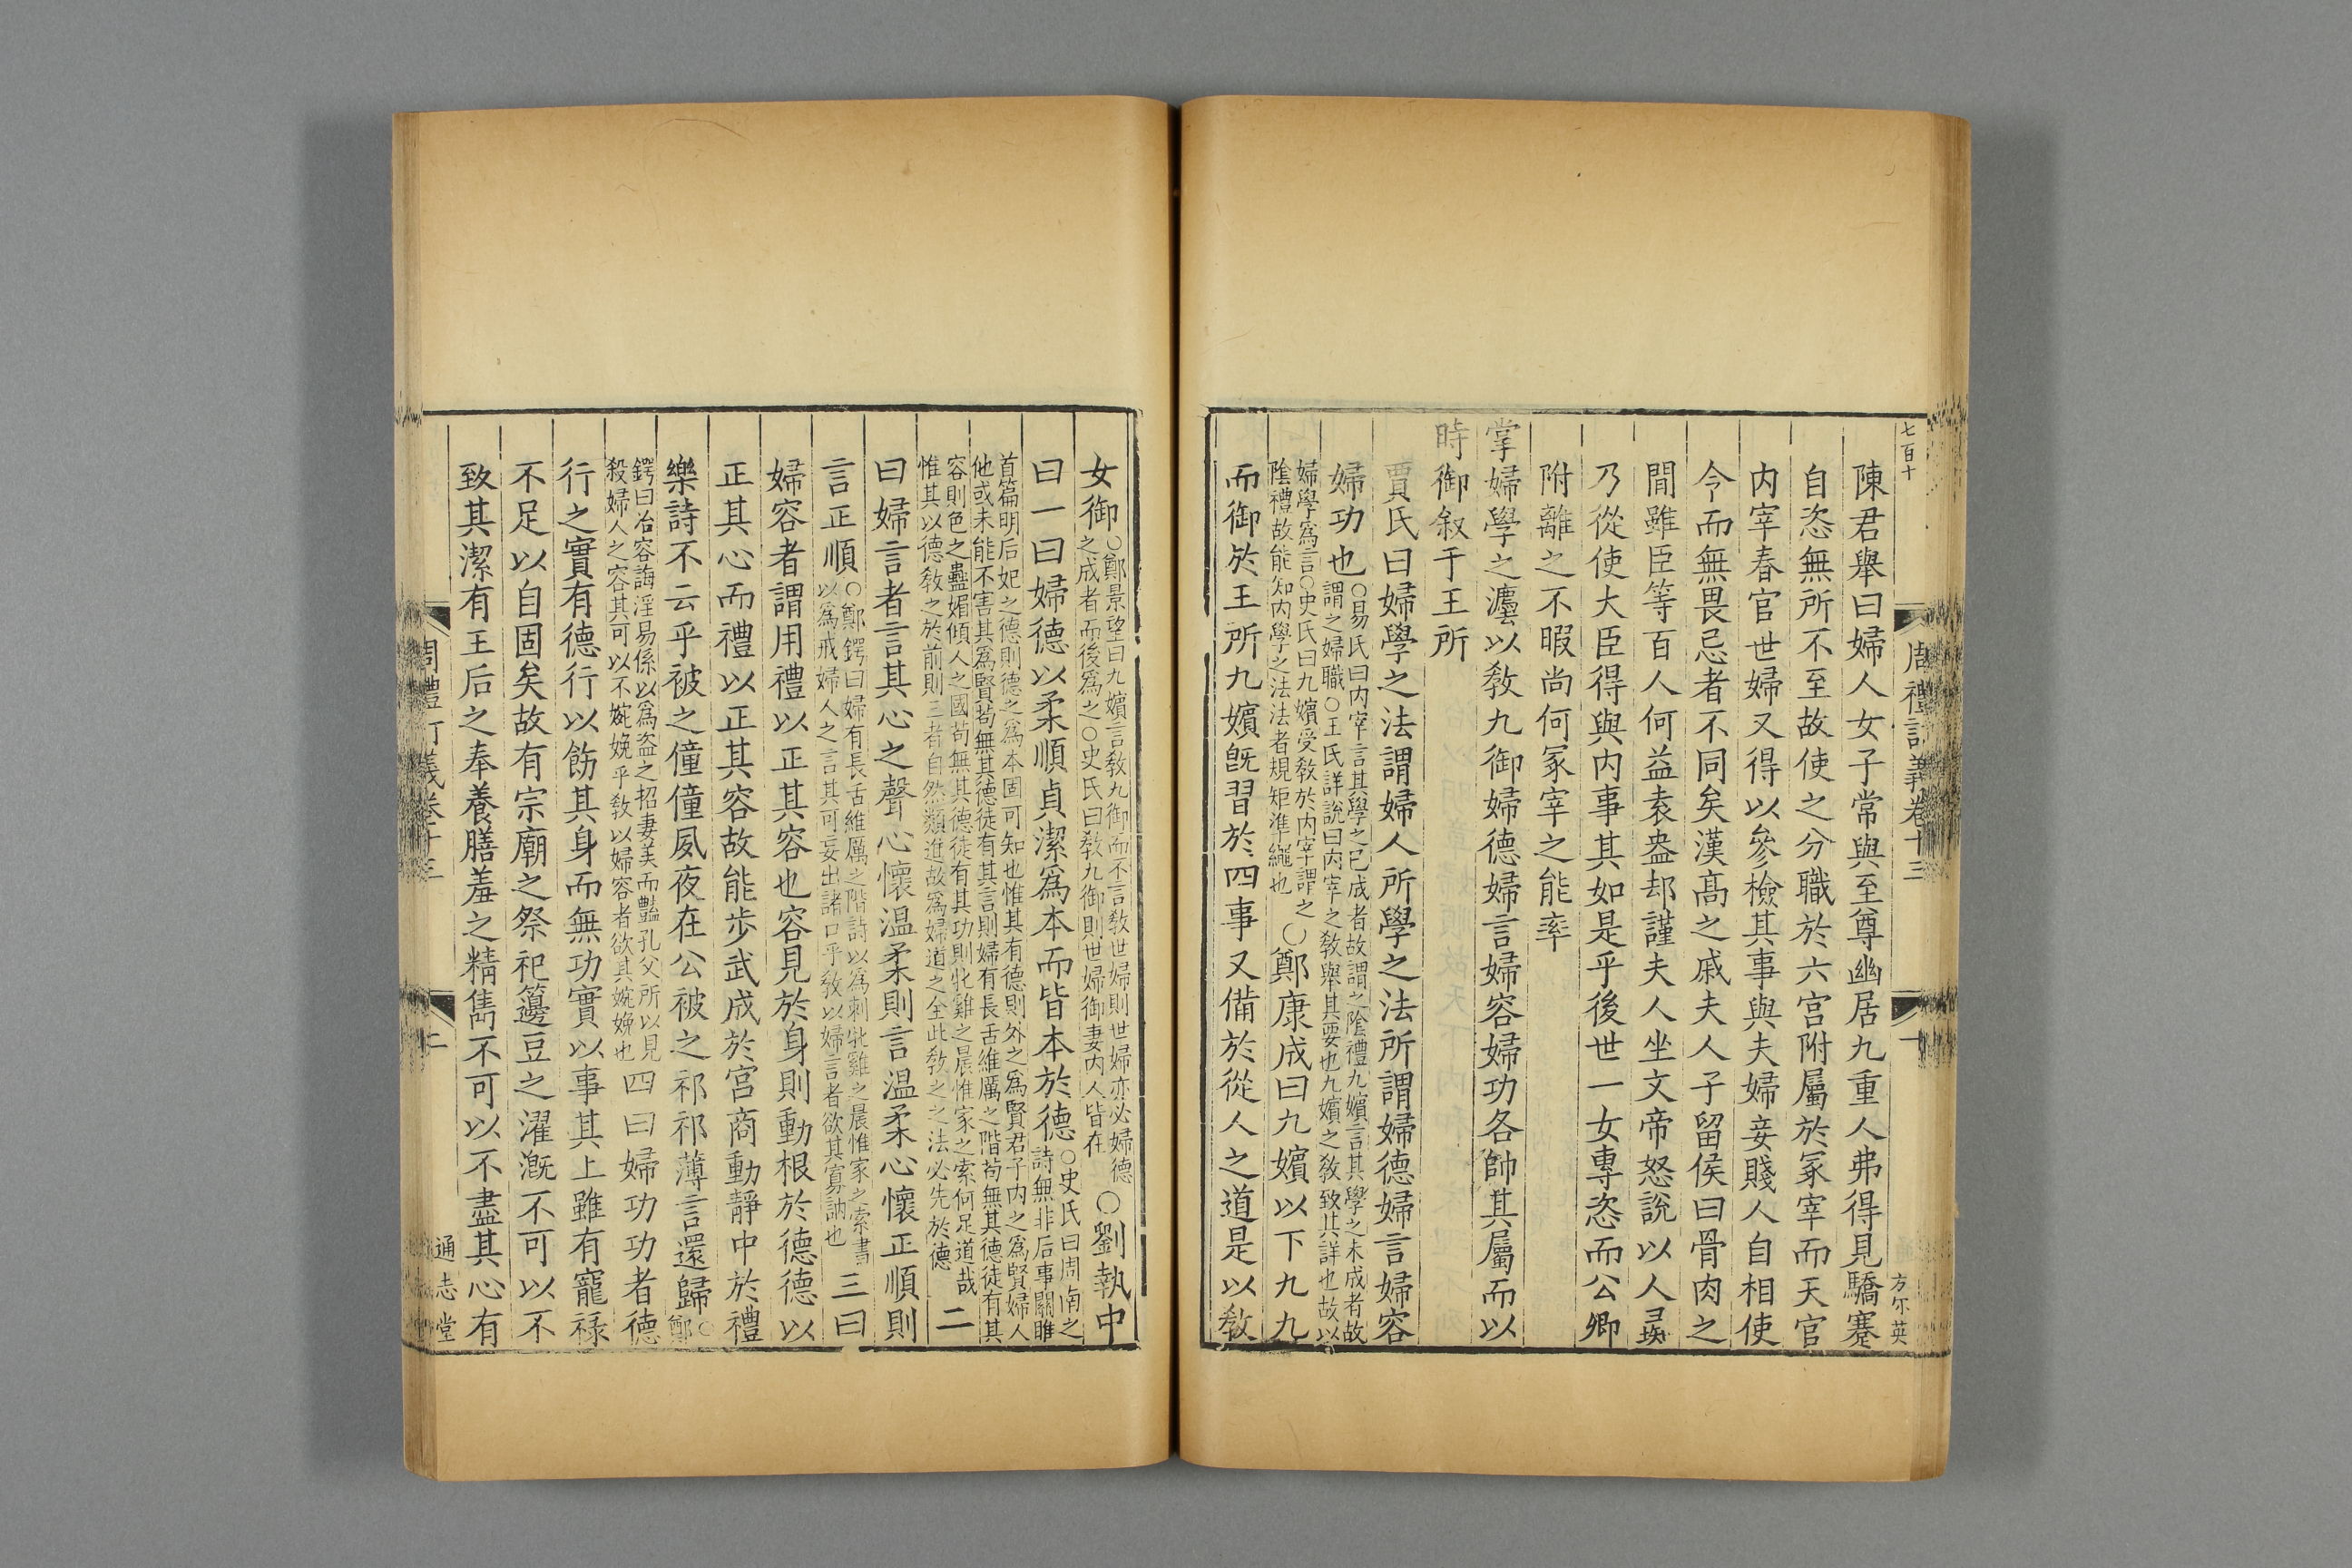 七百十
周禮訂義卷十三
一
方尔英
陳君舉曰婦人女子常與至尊幽居九重人弗得見驕蹇
自恣無所不至故使之分職於六宫附屬於冢宰而天官
内宰春官世婦又得以參檢其事與夫婦妾賤人自相使
今而無畏忌者不同矣漢髙之戚夫人子留侯曰骨肉之
間雖臣等百人何益袁盎却謹夫人坐文帝怒說以人彘
乃從使大臣得與内事其如是乎後世一女專恣而公卿
附離之不暇尚何冢宰之能率
掌婦學之灋以敎九御婦德婦言婦容婦功各帥其屬而以
時御叙于王所
賈氏曰婦學之法謂婦人所學之法所謂婦德婦言婦容
婦功也○易氏曰内宰言其學之已成者故謂之陰禮九嬪言其學之未成者故
謂之婦職○王氏詳說曰内宰之敎舉其要也九嬪之敎致其詳也故以
婦學爲言○史氏曰九嬪受敎於内宰謂之
陰禮故能知内學之法法者規矩準繩也○鄭康成曰九嬪以下九九
而御於王所九嬪旣習於四事又備於從人之道是以敎
女御○鄭景望曰九嬪言敎九御而不言敎世婦則世婦亦必婦德
之成者而後爲之○史氏曰敎九御則世婦御妻内人皆在○劉執中
曰一曰婦德以柔順貞潔爲本而皆本於德○史氏曰周南之
詩無非后事關雎
首篇明后妃之德則德之爲本固可知也惟其有德則外之爲賢君子内之爲賢婦人
他或未能不害其爲賢茍無其德徒有其言則婦有長舌維厲之階茍無其德徒有其
容則色之蠱媚傾人之國茍無其德徒有其功則牝雞之晨惟家之索何足道哉
惟其以德敎之於前則三者自然類進故爲婦道之全此敎之之法必先於德二
曰婦言者言其心之聲心懷温柔則言温柔心懷正順則
言正順○鄭鍔曰婦有長舌維厲之階詩以爲刺牝雞之晨惟家之索書
以爲戒婦人之言其可妄出諸口乎敎以婦言者欲其寡訥也三曰
婦容者謂用禮以正其容也容見於身則動根於德德以
正其心而禮以正其容故能歩武成於宫商動靜中於禮
樂詩不云乎被之僮僮夙夜在公被之祁祁薄言還歸○
鄭
鍔曰冶容誨淫易係以爲盗之招妻美而豔孔父所以見
殺婦人之容其可以不婉娩乎敎以婦容者欲其婉娩也四曰婦功功者德
行之實有德行以飭其身而無功實以事其上雖有寵祿
不足以自固矣故有宗廟之祭祀籩豆之濯漑不可以不
致其潔有王后之奉養膳羞之精雋不可以不盡其心有
周禮訂義卷十三
二
通志堂